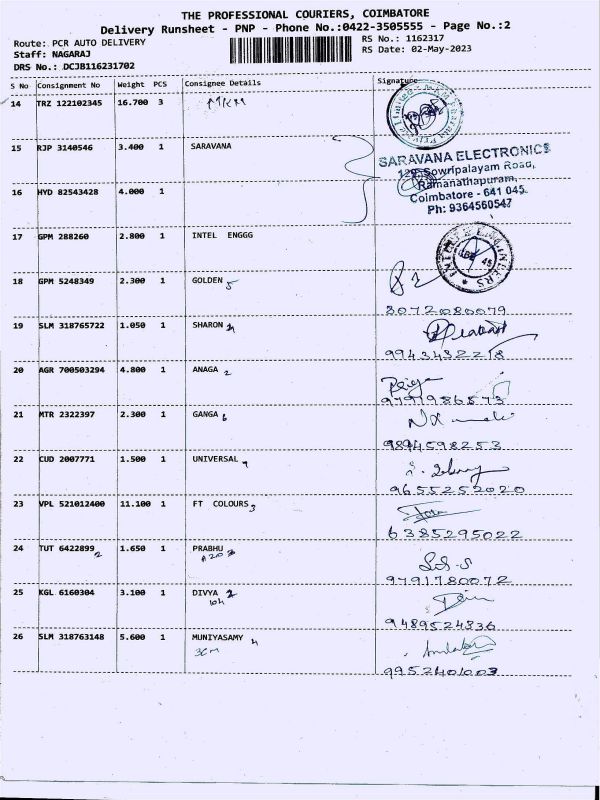 THE PROFESSIONAL COURIERS, COIMBATORE
Delivery Runsheet - PNP - Phone No.:0422-3505555 - Page No.:2
Route: PCR AUTO DELIVERY
RS No.: 1162317
Staff: NAGARAJ
RS Date: 02-May-2023
DRS No.: DCJB116231702
S No Consignment No Weight PCS Consignee Details Signature
14 TRZ 122102345 16.700 3 MKM
15 RJP 3140546 3.400 1 SARAVANA
SARAVANA ELECTRONICS
129, Sowripalayam Road,
Ramanathapuram,
Coimbatore - 641 045.
Ph: 9364560547
16 HYD 82543428 4.000 1
17 GPM 288260 2.800 1 INTEL ENGGG
18 GPM 5248349 2.300 1 GOLDEN 5
3072080079
19 SLM 318765722 1.050 1 SHARON
9943432218
20 AGR 700503294 4.800 1 ANAGA 2
Priya
9791986573
21 MTR 2322397 2.300 1 GANGA 6
9894598253
22 CUD 2007771 1.500 1 UNIVERSAL
9655252020
23 VPL 521012400 11.100 1 FT COLOURS 3
6385295022
24 TUT 6422899 2 1.650 1 PRABHU
9791780072
25 KGL 6160304 3.100 1 DIVYA 2
9489524836
26 SLM 318763148 5.600 1 MUNIYASAMY
9952401003